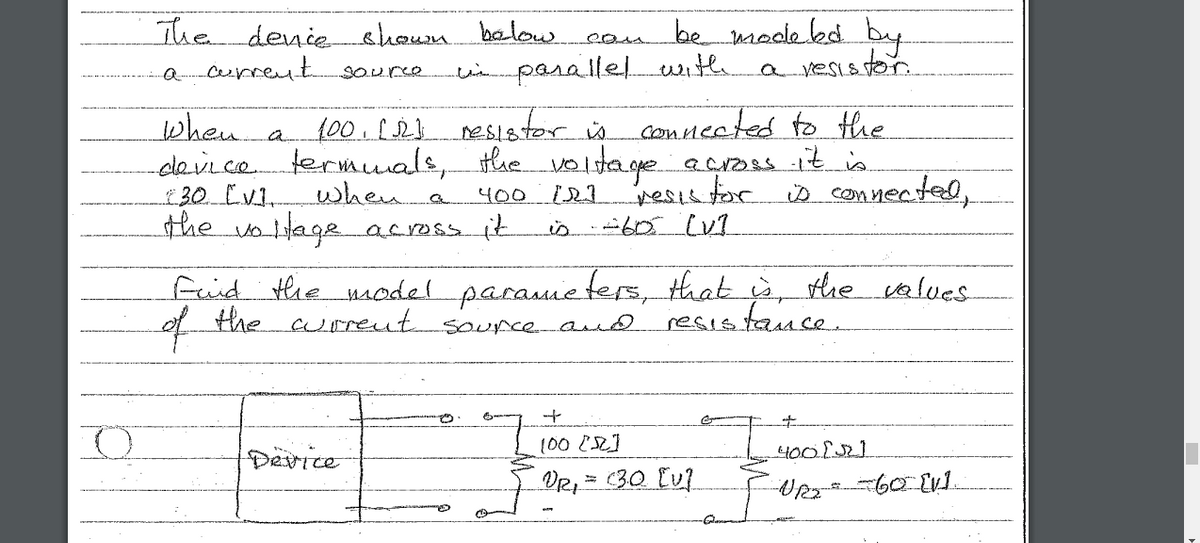 The device shown below can be modeled by
a current source in parallel with a resistor.
When a 100. [Ω] resistor is connected to the
device terminals, the voltage across it is
30 [V]. When a 400 [Ω] resistor is connected,
the voltage across it is -60 [V]
Find the model parameters, that is, the values
of the current source and resistance.
Device
+
100 [Ω]
VR1 = 30 [V]
-
+
400 [Ω]
VR2 = -60 [V].
-